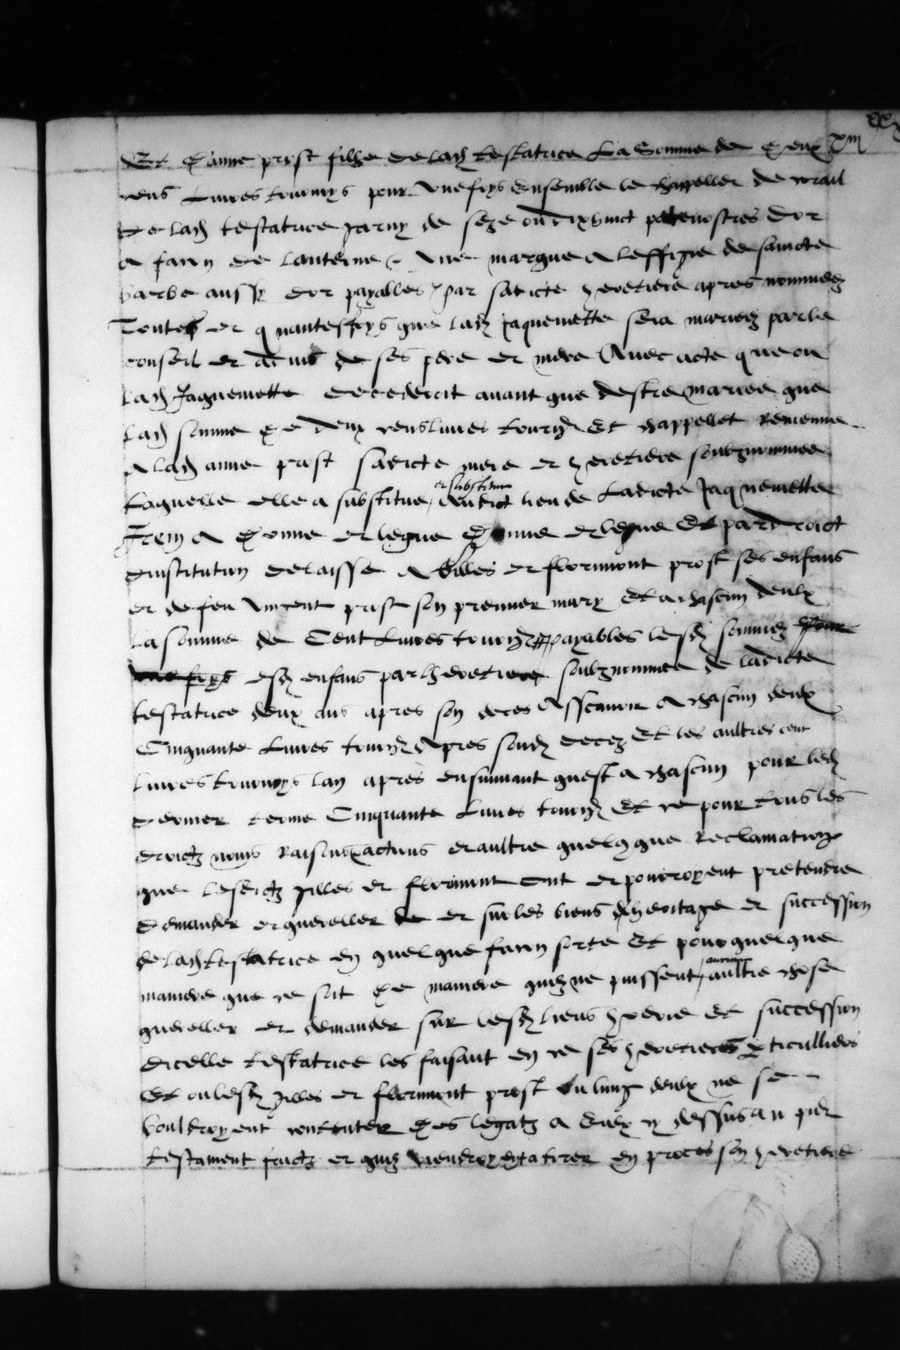 Et danne prost filhe de lad testatrice La somme de deux
cens Livres tournoys pour une foys ensemble le chappellet de corail
De lad testatrice garny de seze ou dixhuict patenostres dor
a facon de lanterne & une marque a leffigie de saincte
barbe aussy dor payables par sadicte heretiere apres nommee
Toutes et quantesfoys que lad Jaquemette sera mariee par le
conseil et advis de ses pere et mere Avec acte que ou
Lad Jaquemette decederoit avant que destre mariee que
Lad somme de deux cens livres tourn Et chappellet Revienne
A lad anne prost sadicte mere et heretiere soubznommee
Laquelle elle a substitue et substitue audict lieu de Ladicte Jaquemette
Item a donne et legue donne et legue Et par droict
dinstitution delaisse a Gilles et florimont prost ses enfans
et de feu vincent prost son premier mary Et a chascun deulx
La somme de Cent Livres tourn payables lesd sommes
esd enfans par lheretiere soubznommee de ladicte
testatrice deux ans apres son deces Assavoir a chascun deulx
Cinquante Livres tourn Apres sond decez Et les aultres cent
Livres tournoys lan apres ensuivant quest a chascun pour led
Dernier terme Cinquante Livres tourn Et ce pour tous les
droictz noms raisons actions et aultre quelque Reclamation
que Lesdictz gilles et florimont ont et pourroyent pretendre
Demander et quereller et sur les biens dheritage et succession
de lad testatrice en quelque facon sorte Et pour quelque
maniere que ce soit De maniere quilz ne puissent aucune aultre chose
quereller et demander sur lesd biens hoirie Et succession
dicelle testatrice les faisant en ce ses heretiers particulliers
Et ou lesd gilles et florimont prost ou lung deulx ne se
vouldroyent contenter des legatz a Eulx cy dessus au pnt
testament faictz et quilz viendroyent a tirer en proces son heretiere